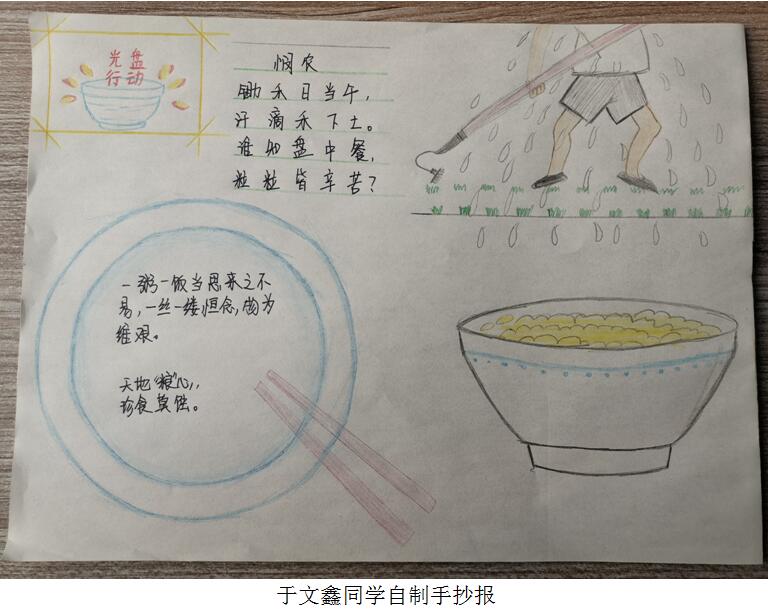 光盘
行动
悯农
锄禾日当午,
汗滴禾下土。
谁知盘中餐,
粒粒皆辛苦?
一粥一饭当思来之不
易,一丝一缕恒念,物为
维艰。
天地“粮”心,
珍食莫
于文鑫同学自制手抄报